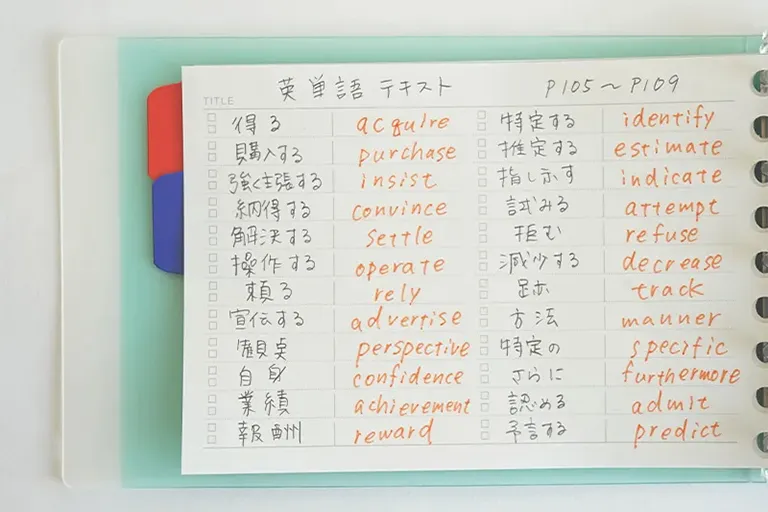 英単語テキスト P105～P109
TITLE
得る acquire 特定する identify
購入する purchase 推定する estimate
強く主張する insist 指し示す indicate
納得する convince 試みる attempt
解決する settle 拒む refuse
操作する operate 減少する decrease
頼る rely 足跡 track
宣伝する advertise 方法 manner
perspective 特定の specific
自身 confidence さらに furthermore
業績 achievement 認める admit
報酬 reward 予言する predict